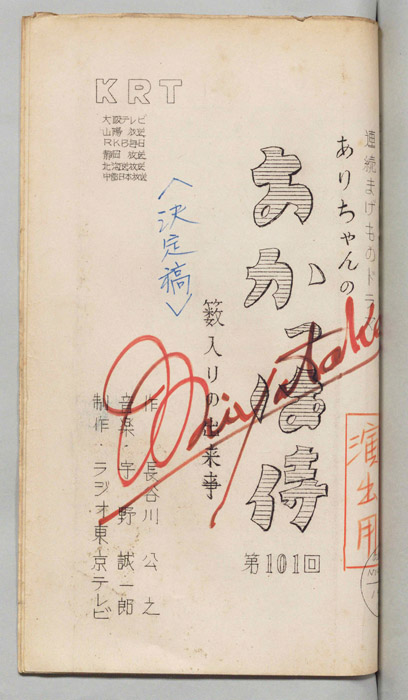 連続まげものドラ
ありちゃんの
おかっぱ侍
第101回
演出用
籔入りの出来事
作 長谷川公之
音楽・宇野誠一郎
制作・ラジオ東京テレビ
〈決定稿〉
KRT
大阪テレビ
山陽放送
RKB毎日
静岡放送
北海道放送
中部日本放送